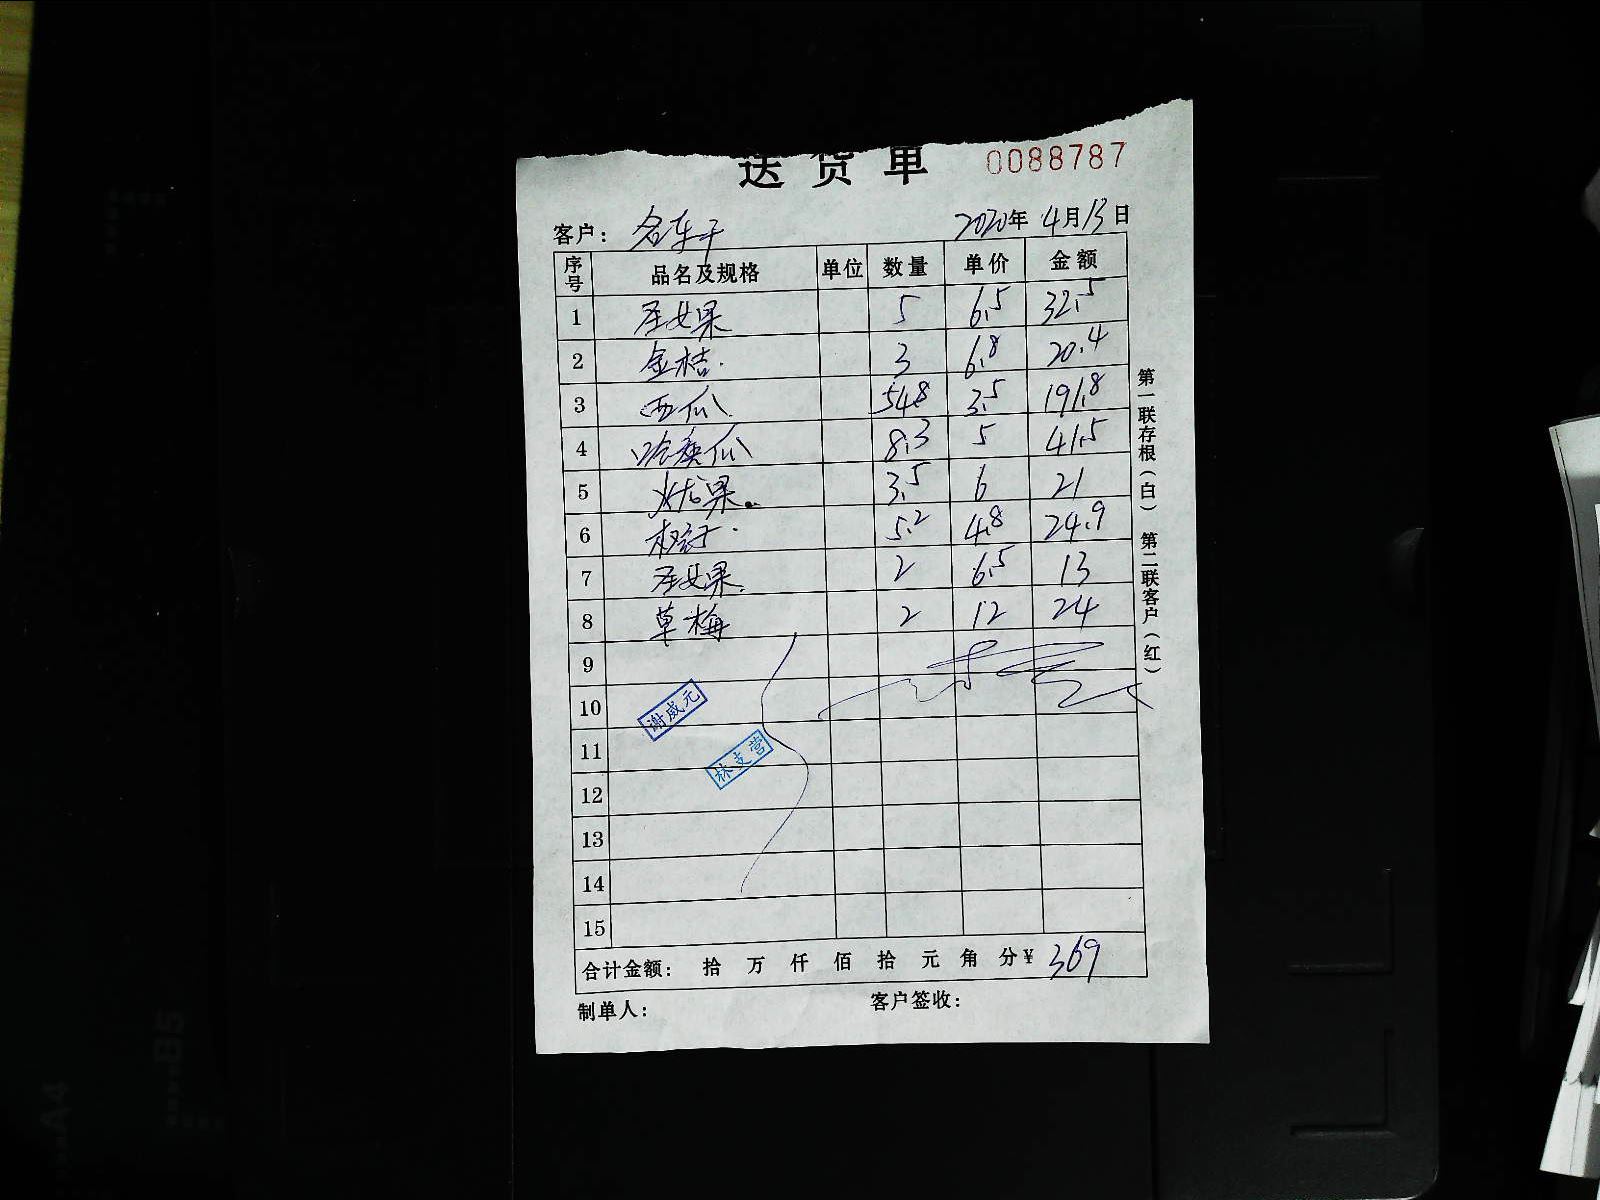 送货单 0088787
客户： 2020年4月13日
序号 品名及规格 单位 数量 单价 金额
1 圣女果 5 6.5 32.5
2 金桔. 3 6.8 20.4
3 西瓜. 54.8 3.5 191.8
4 哈蜜瓜 8.3 5 41.5
5 火龙果. 3.5 6 21
6 5.2 4.8 24.9
7 圣女果. 2 6.5 13
8 草梅 2 12 24
9
10 谢威元
11 林支营
12
13
14
15
合计金额： 拾 万 仟 佰 拾 元 角 分¥ 369
制单人： 客户签收：
第一联存根（白） 第二联客户（红）